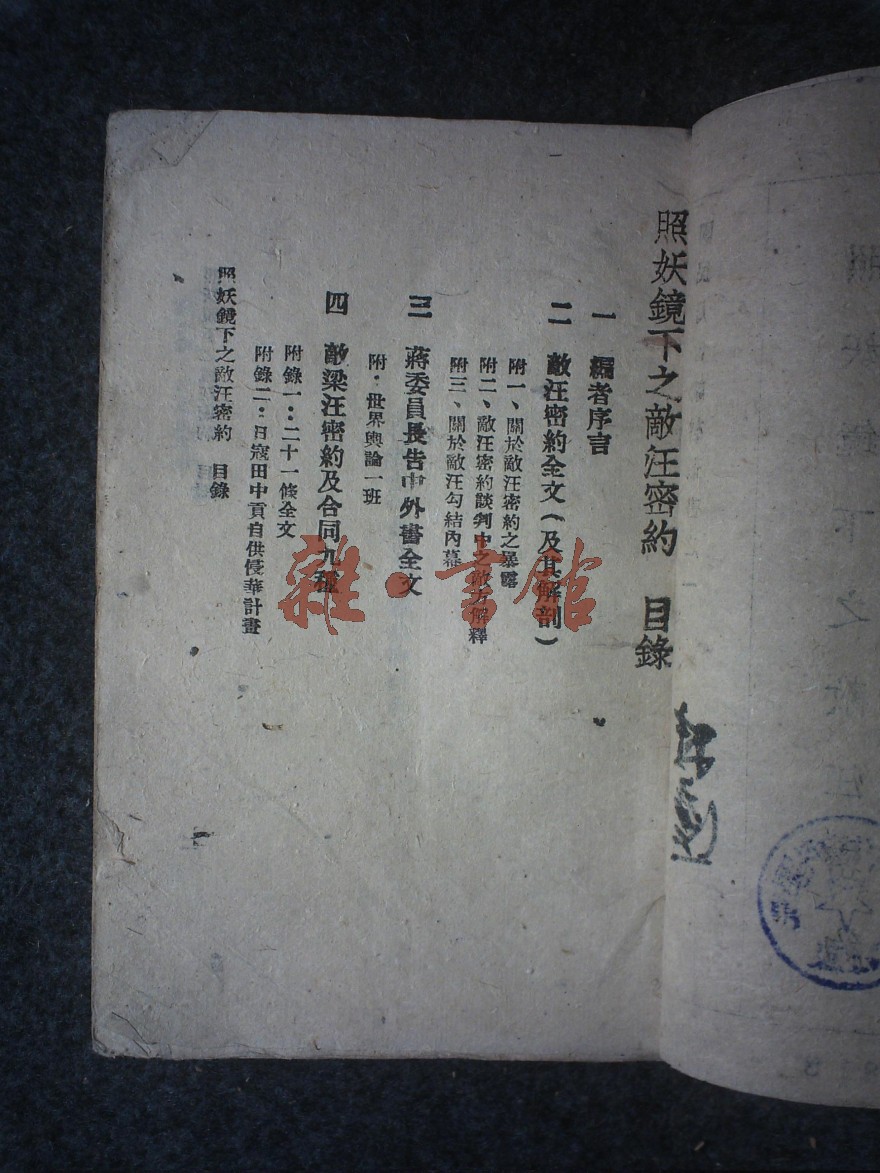 照妖鏡下之敵汪密約　目錄
一　編者序言
二　敵汪密約全文（及其解剖）
附一、關於敵汪密約之暴露
附二、敵汪密約談判中之敵方解釋
附三、關於敵汪勾結內幕
三　蔣委員長告中外書全文
附．世界輿論一班
四　敵梁汪密約及合同九種
附錄一：二十一條全文
附錄二：日寇田中貢自供侵華計畫
照妖鏡下之敵汪密約　目錄
雜·書館